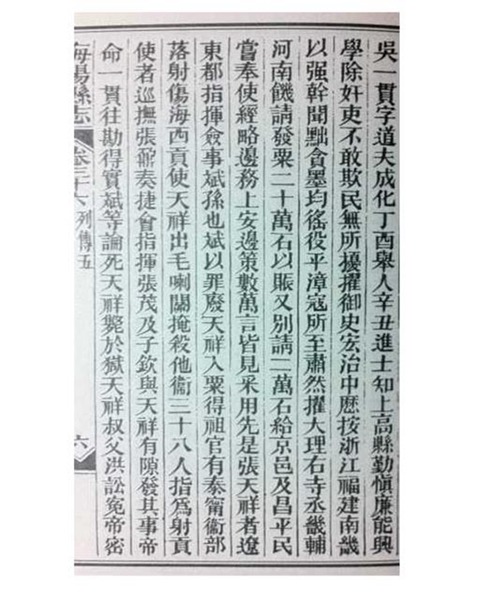 吳一貫字道夫成化丁酉舉人辛丑進士知上高縣勤慎廉能興
學除奸吏不敢欺民無所擾擢御史宏治中歷按浙江福建南畿
以强幹聞黜貪墨均徭役平漳寇所至肅然擢大理右寺丞畿輔
河南饑請發粟二十萬石以賑又別請二萬石給京邑及昌平民
嘗奉使經略邊務上安邊策數萬言皆見采用先是張天祥者遼
東都指揮僉事斌孫也斌以罪廢天祥入粟得祖官有泰甯衞部
落射傷海西貢使天祥出毛喇關掩殺他衞三十八人指爲射貢
使者巡撫張鼐奏捷會指揮張茂及子欽與天祥有隙發其事帝
命一貫往勘得實斌等論死天祥斃於獄天祥叔父洪訟寃帝密
海陽縣志 卷三十六 列傳五 六